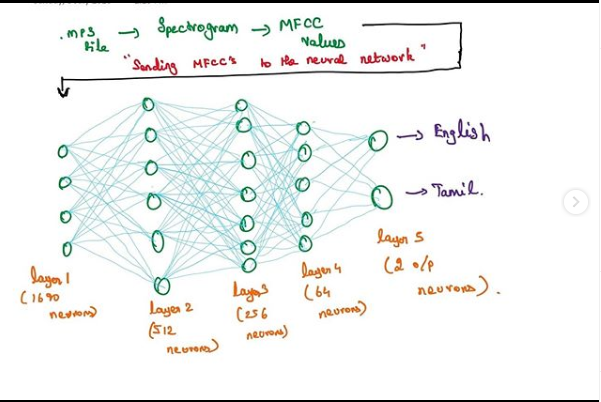 .mp3 file → Spectrogram → MFCC values
"Sending MFCC's to the neural network"
→ English
→ Tamil.
layer 1
(1690
neurons)
layer 2
(512
neurons)
layer 3
(256
neurons)
layer 4
(64
neurons)
layer 5
(2 o/p
neurons).